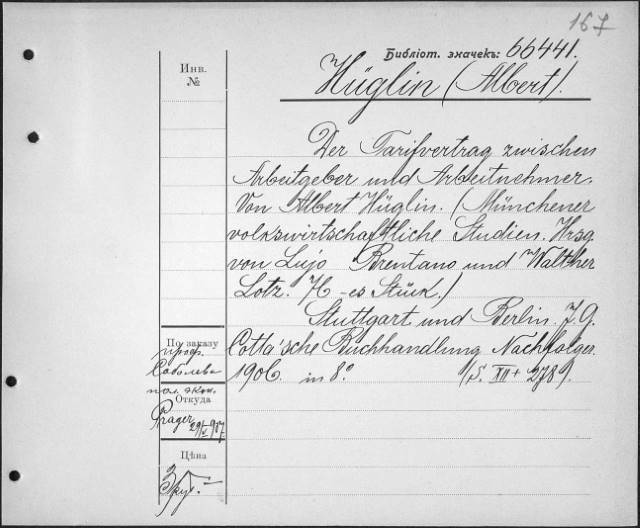 167
Библіот. значекъ: 66441.
Инв.
№
Hüglin (Albert).
Der Tarifvertrag zwischen
Arbeitgeber und Arbeitnehmer.
Von Albert Hüglin. (Münchener
volkswirtschaftliche Studien. Hrsg
von Lujo Brentano und Walther
Lotz. 76-es Stück.)
Stuttgart und Berlin. J. G.
Cotta'sche Buchhandlung Nachfolger.
1906. in 8º. (S. XII + 278).
По заказу
проф.
Соболева
пол. Экон.
Откуда
Prager 29/V 907
Цѣна